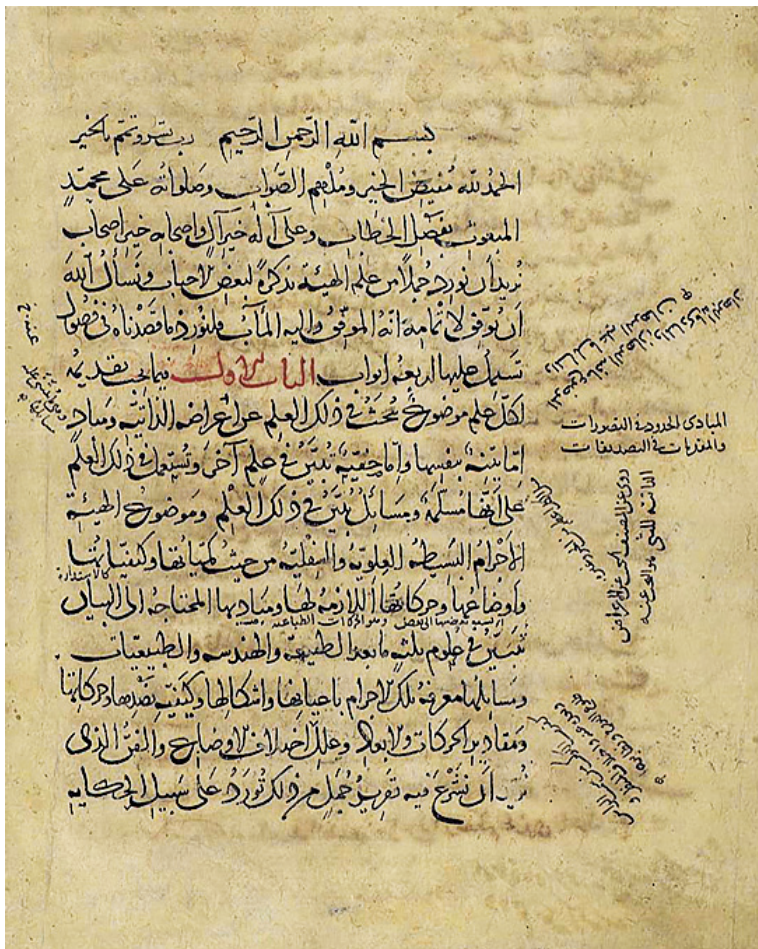 بسم الله الرحمن الرحيم رب يسر وتمم بالخير
الحمد لله مفيض الخير وملهم الصواب وصلواته على محمد
المبعوث بفصل الخطاب وعلى آله خير آل واصحابه خير اصحاب
نريد أن نورد جملا من علم الهيئة تذكرة لبعض الاحباب ونسأل الله
أن يوفق لاتمامه انه الموفق واليه المآب فلنورد ما قصدناه في فصول
تشتمل عليها اربعة ابواب الباب الاول فيما يجب تقديمه
لكل علم موضوع يبحث في ذلك العلم عن اعراضه الذاتية ومباد
اما بينة بنفسها واما خفية تبين في علم آخر وتستعمل في ذلك العلم
على أنها مسلمة ومسائل تبين في ذلك العلم وموضوع الهيئة
الاجرام البسيطة العلوية والسفلية من حيث كمياتها وكيفياتها
وأوضاعها وحركاتها اللازمة لها ومباديها المحتاجة الى البيان
تتبين في علوم ثلثة ما بعد الطبيعة والهندسة والطبيعيات
ومسائلها معرفة تلك الاجرام باعيانها واشكالها وكيفية نضدها وحركاتها
ومقادير الحركات والابعاد وعلل اختلاف الاوضاع والفن الذي
نريد أن نشرع فيه تقرير جمل من ذلك تورد على سبيل الحكاية
المبادى الحدود في التصورات
والمقدمات في التصديقات